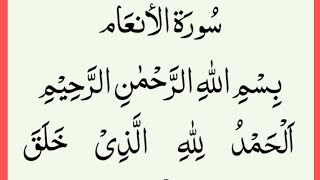 سُورَة الأنعَام
بِسْمِ اللهِ الرَّحْمٰنِ الرَّحِيْمِ
اَلْحَمْدُ لِلهِ الَّذِیْ خَلَقَ